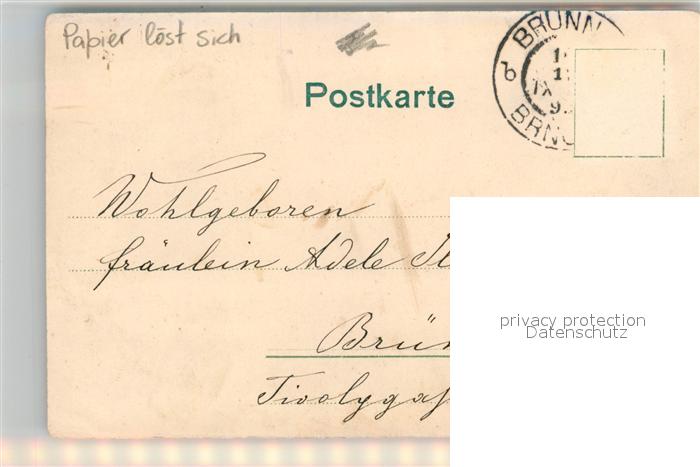 Papier löst sich
BRÜNN
BRNO
Postkarte
Wohlgeboren
fräulein Adele
Brün
Tivolygaß
privacy protection
Datenschutz